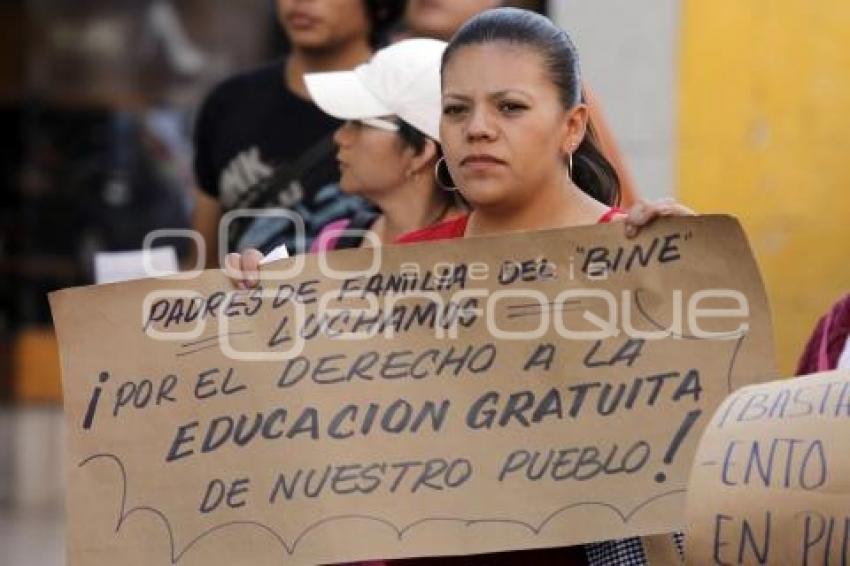 PADRES DE FAMILIA DEL "BINE"
LUCHAMOS
¡POR EL DERECHO A LA
EDUCACION GRATUITA
DE NUESTRO PUEBLO!
agencia
enfoque
¡BASTA
ENTO
EN